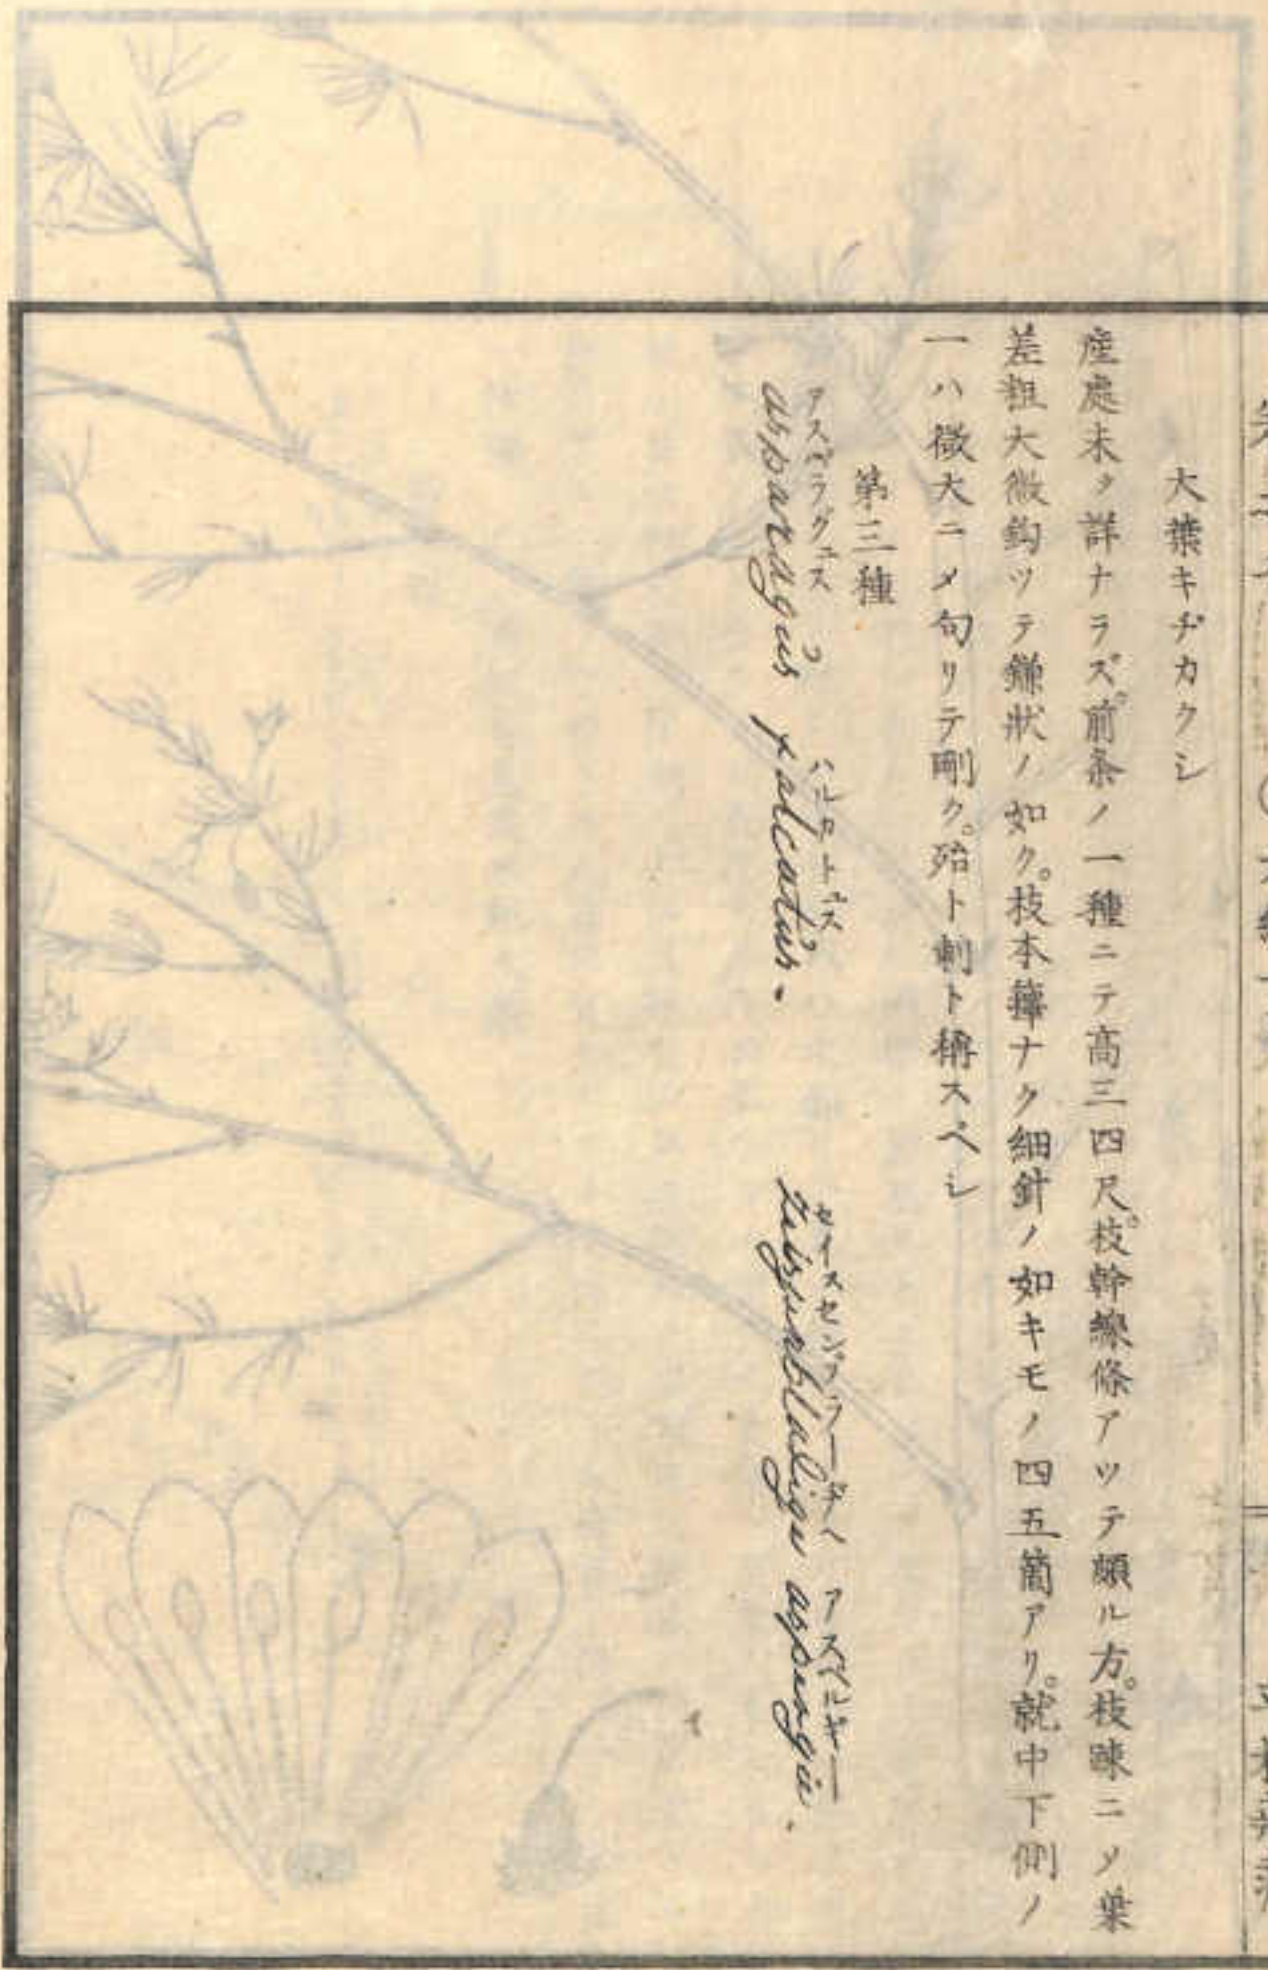 大葉キヂカクシ
産處未タ詳ナラズ。前条ノ一種ニテ高三四尺。枝幹線條アツテ頗ル方。枝疎ニメ葉
差粗大微鈎ツテ鎌狀ノ如ク。枝本籜ナク細針ノ如キモノ四五箇アリ。就中下側ノ
一ハ微大ニメ勾リテ剛ク。殆ト刺ト稱スベシ
第三種
アスパラグュス ハルカトュス
asparagus falcatus.
アスペルギー
aspergie.